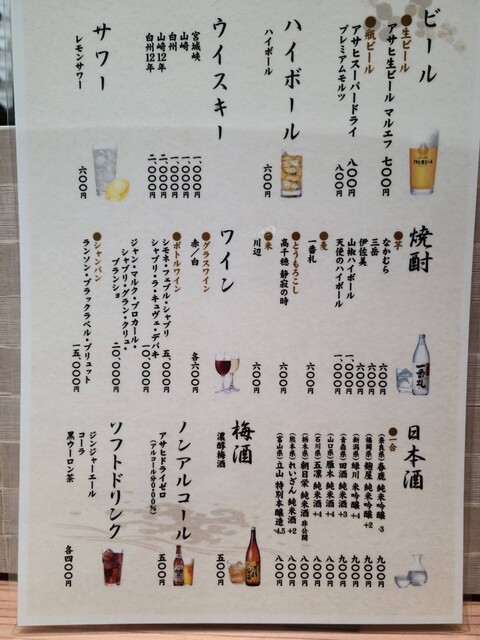 ビール
●生ビール
アサヒ生ビール マルエフ 七〇〇円
●瓶ビール
アサヒスーパードライ 八〇〇円
プレミアムモルツ 八〇〇円
ハイボール
ハイボール 六〇〇円
ウイスキー
宮城峡 一、〇〇〇円
山崎 一、〇〇〇円
白州 一、〇〇〇円
山崎12年 二、〇〇〇円
白州12年 二、〇〇〇円
サワー
レモンサワー 六〇〇円
焼酎
●芋
なかむら 六〇〇円
三岳 六〇〇円
伊佐美 六〇〇円
山椒ハイボール 一、〇〇〇円
天使のハイボール 一、〇〇〇円
●麦
一番札 六〇〇円
●とうもろこし
高千穂 静寂の時 六〇〇円
●米
川辺 六〇〇円
ワイン
●グラスワイン
赤/白 各六〇〇円
●ボトルワイン
シモネ・フェブル・シャブリ 五、〇〇〇円
シャブリ・ラ・キュヴェ・デパキ 一〇、〇〇〇円
ジャン・マルク・ブロカール・
シャブリ・グラン・クリュ・
ブランショ 二〇、〇〇〇円
●シャンパン
ランソン・ブラックラベル・ブリュット
一五、〇〇〇円
日本酒
●一合
(奈良県)春鹿 純米吟醸 -3 九〇〇円
(福岡県)麹屋 純米吟醸 +2 九〇〇円
(新潟県)緑川 米吟醸 +4 九〇〇円
(青森県)田酒 純米酒 +3 九〇〇円
(山口県)雁木 純米酒 +4 八〇〇円
(石川県)五凛 純米酒 +4 八〇〇円
(栃木県)朝日栄 純米酒 非公開 八〇〇円
(熊本県)れいざん 純米酒 +2 八〇〇円
(富山県)立山 特別本醸造 +4.5 八〇〇円
梅酒
濃醇梅酒 五〇〇円
ノンアルコール
アサヒドライゼロ 五〇〇円
(アルコール分0.00%)
ソフトドリンク
ジンジャーエール
コーラ
黒ウーロン茶 各四〇〇円
一番札